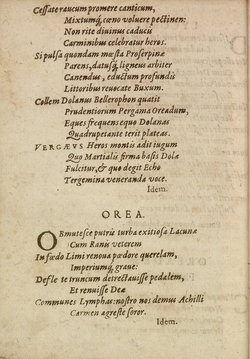 Cessate raucum promere canticum,
Mixtumq́; cœno voluere pectinem:
Non rite diuinus caducis
Carminibus celebratur heros.
Si pulsa quondam mœsta Proserpina
Parens, datusq́; ligneus arbiter
Canendus, eductum profundis
Littoribus reuocate Buxum.
Collem Dolanus Bellerophon quatit
Prudentiorum Pergama Oreadum,
Eques frequens equo Dolanas
Quadrupetante terit plateas.
VERGÆVS Heros montis adit iugum
Quo Martialis firma basis Dolæ
Fulcitur, & quo degit Echo
Tergemina veneranda voce.
Idem.
OREA.
OBmutesce putris turba exitiosa Lacunæ
Cum Ranis veterem
In fœdo Limi renoua pædore querelam,
Imperiumq́; graue:
Defle te truncum detrectauisse pedalem,
Et renuisse Deæ
Communes Lymphas: nostro nos demus Achilli
Carmen agreste soror.
Idem.